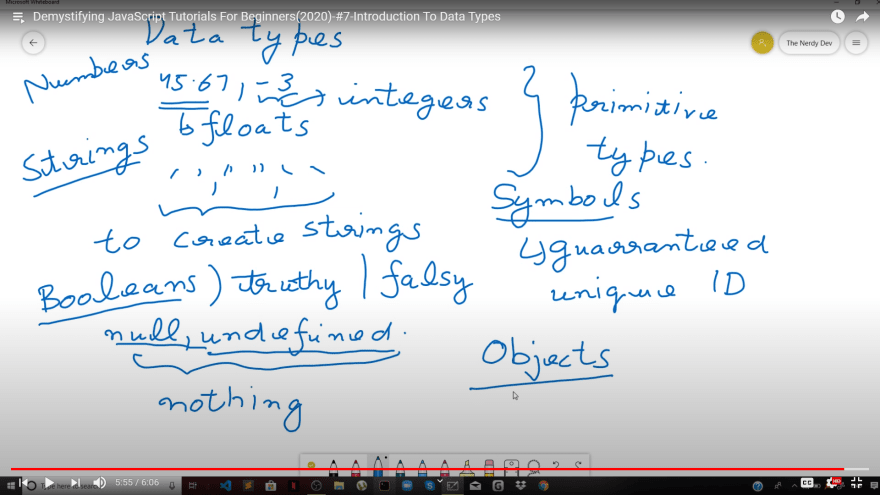 Microsoft Whiteboard
Demystifying JavaScript Tutorials For Beginners(2020)-#7-Introduction To Data Types
Data types
The Nerdy Dev
Numbers
45.67, -3 → integers
floats
Strings
' ', " ", ` `
to create strings
Booleans) truthy | falsy
null, undefined.
nothing
} primitive
types.
Symbols
↳ guarranteed
unique ID
Objects
5:55 / 6:06
Type here to search
CC
HD